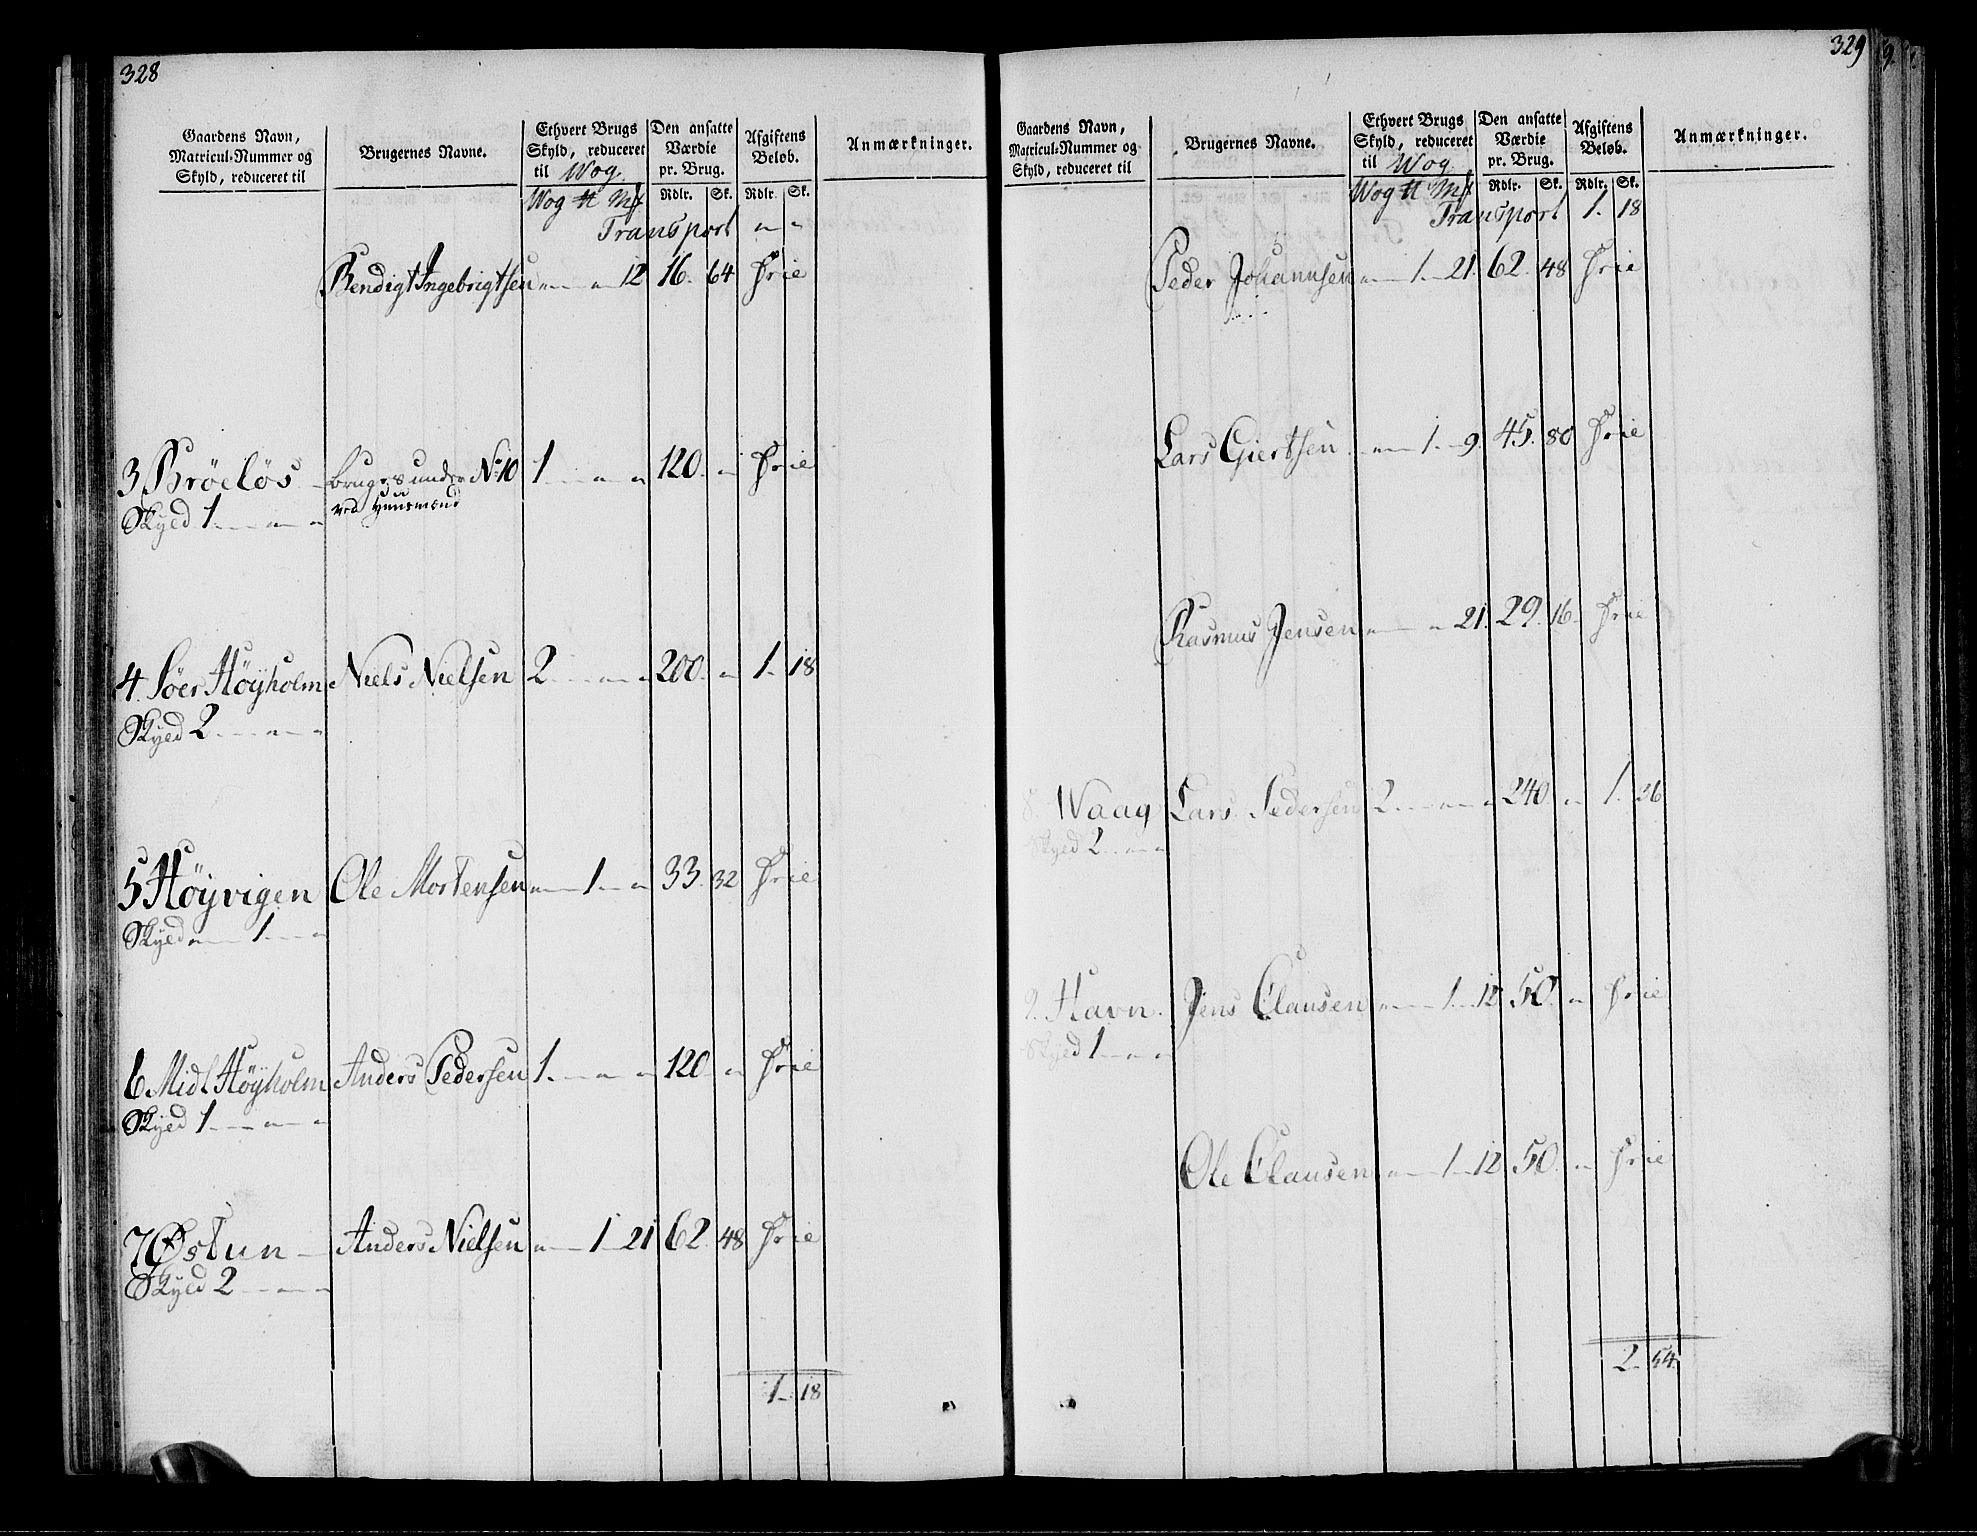 328
Gaardens Navn, Matricul-Nummer og Skyld, reduceret til
Brugernes Navne.
Ethvert Brugs Skyld, reduceret til Wog
Den ansatte Værdie pr. Brug.
Afgiftens Beløb.
Anmærkninger.
Wog ℔ Mk Rdlr. Sk. Rdlr. Sk.
Transport " "
Bendigt Ingebrigtsen " — " 12 16. 64 Frie
3 Brøeløs — bruges under No 10 1 — " " 120. " Frie
Skyld 1 — " — " ved Huusmænd
4. Søer Høÿholm Niels Nielsen 2 — " — " 200. " 1. 18
Skyld 2 — " — "
5 Høÿvigen Ole Mortensen " — 1 — " 33. 32 Frie
Skyld " — 1 — "
6 Midl Høÿholm Anders Pedersen 1 — " " 120. " Frie
Skyld 1 — " — "
7 Østun — Anders Nielsen " — 1 — 21 62. 48 Frie
Skyld 2 — " — "
1. 18
329
Gaardens Navn, Matricul-Nummer og Skyld, reduceret til
Brugernes Navne.
Ethvert Brugs Skyld, reduceret til Wog
Den ansatte Værdie pr. Brug.
Afgiftens Beløb.
Anmærkninger.
Wog ℔ Mk Rdlr. Sk. Rdlr. Sk.
Transport 1. 18
Peder Johannsen " — 1 — 21. 62. 48 Frie
Lars Giertsen " — 1 — 9. 45. 80 Frie
Rasmus Jensen " — " 21. 29. 16 Frie
8. Waag Lars Pedersen 2 — " — " 240. " 1. 26
Skyld 2 — " — "
9. Havn. Jens Clausen " — 1 — 12 50. " Frie
Skyld 1 — " — "
Ole Clausen " — 1 — 12 50. " Frie
2. 54.